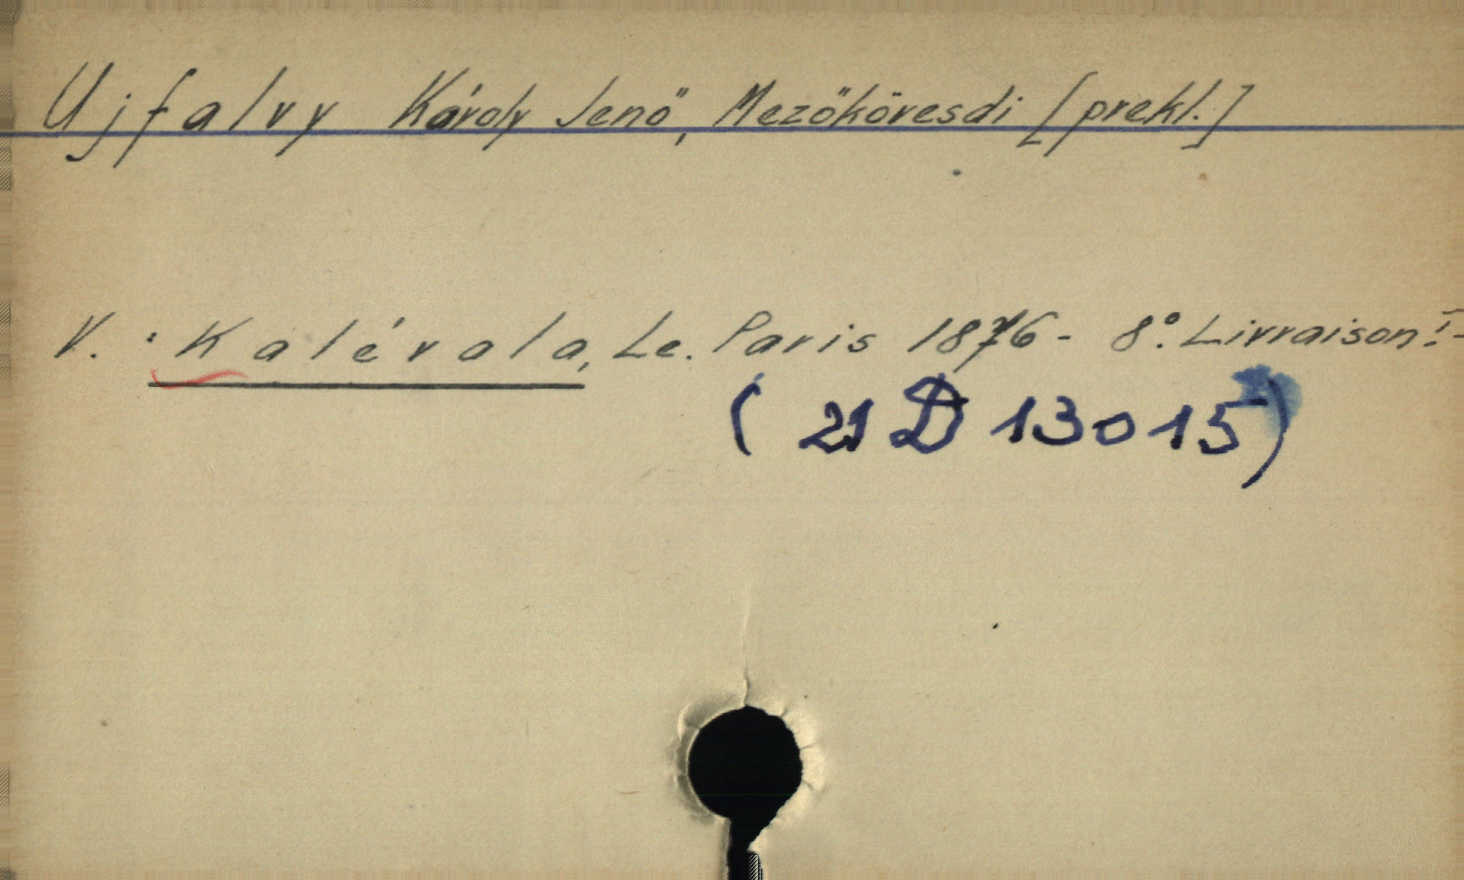 Ujfalvy Károly Jenő, Mezőkövesdi [prekl.]
V.: Kalévala, Le. Paris 1876- 8°. Livraison: I-
(21 D 13015)